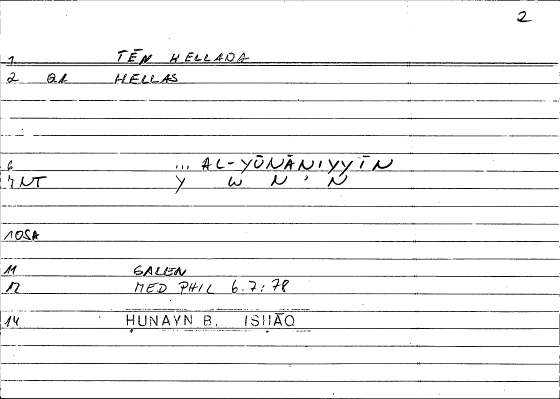 2
1 TĒN HELLADA
2 GR HELLAS
6 ... AL-YŪNĀNIYYĪN
7 NT Y W N ' N
10SA
11 GALEN
12 MED PHIL 6.7:78
14 ḤUNAYN B. ISḤĀQ